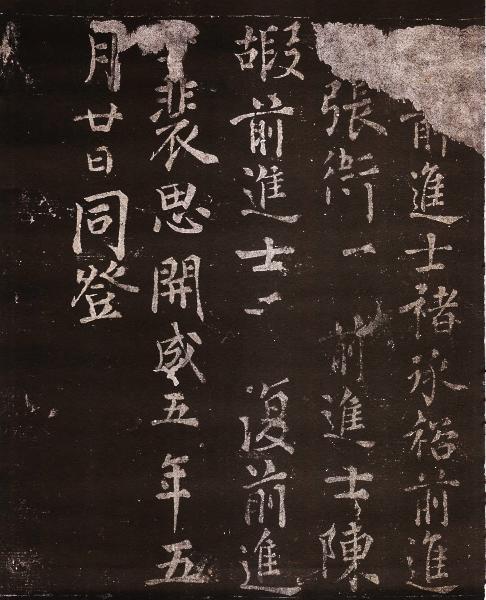 前進士褚承裕前進
張 一 前進士陳
嘏前進士 復前進
裴思開成五年五
月廿日同登